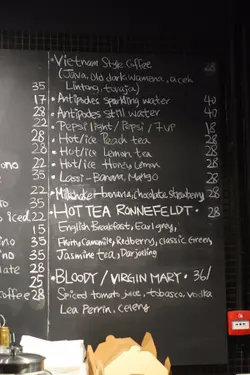 35
17
28
22
22
28
28
35
ono 22
o iced 22
no 35
ino 35
late 28
25
offee 28
• Vietnam Style Coffee 28
(Java, old dark wamena, aceh
Lintong, toraja)
• Antipodes sparkling water 40
• Antipodes still water 40
• Pepsi light / Pepsi / 7up 18
• Hot/ice Peach tea 28
• Hot/ice Lemon tea 28
• Hot/ice Honey Lemon 28
• Lassi - Banana, Mango 28
• Milkshake banana, chocolate, strawberry 28
• HOT TEA RONNEFELDT • 28
English Breakfast, Earl grey,
Fruity, Camomile, Redberry, Classic Green,
Jasmine tea, Darjeling
• BLOODY / VIRGIN MARY • 36/
Spiced tomato juice, tobasco, vodka
Lea Perrin, celery